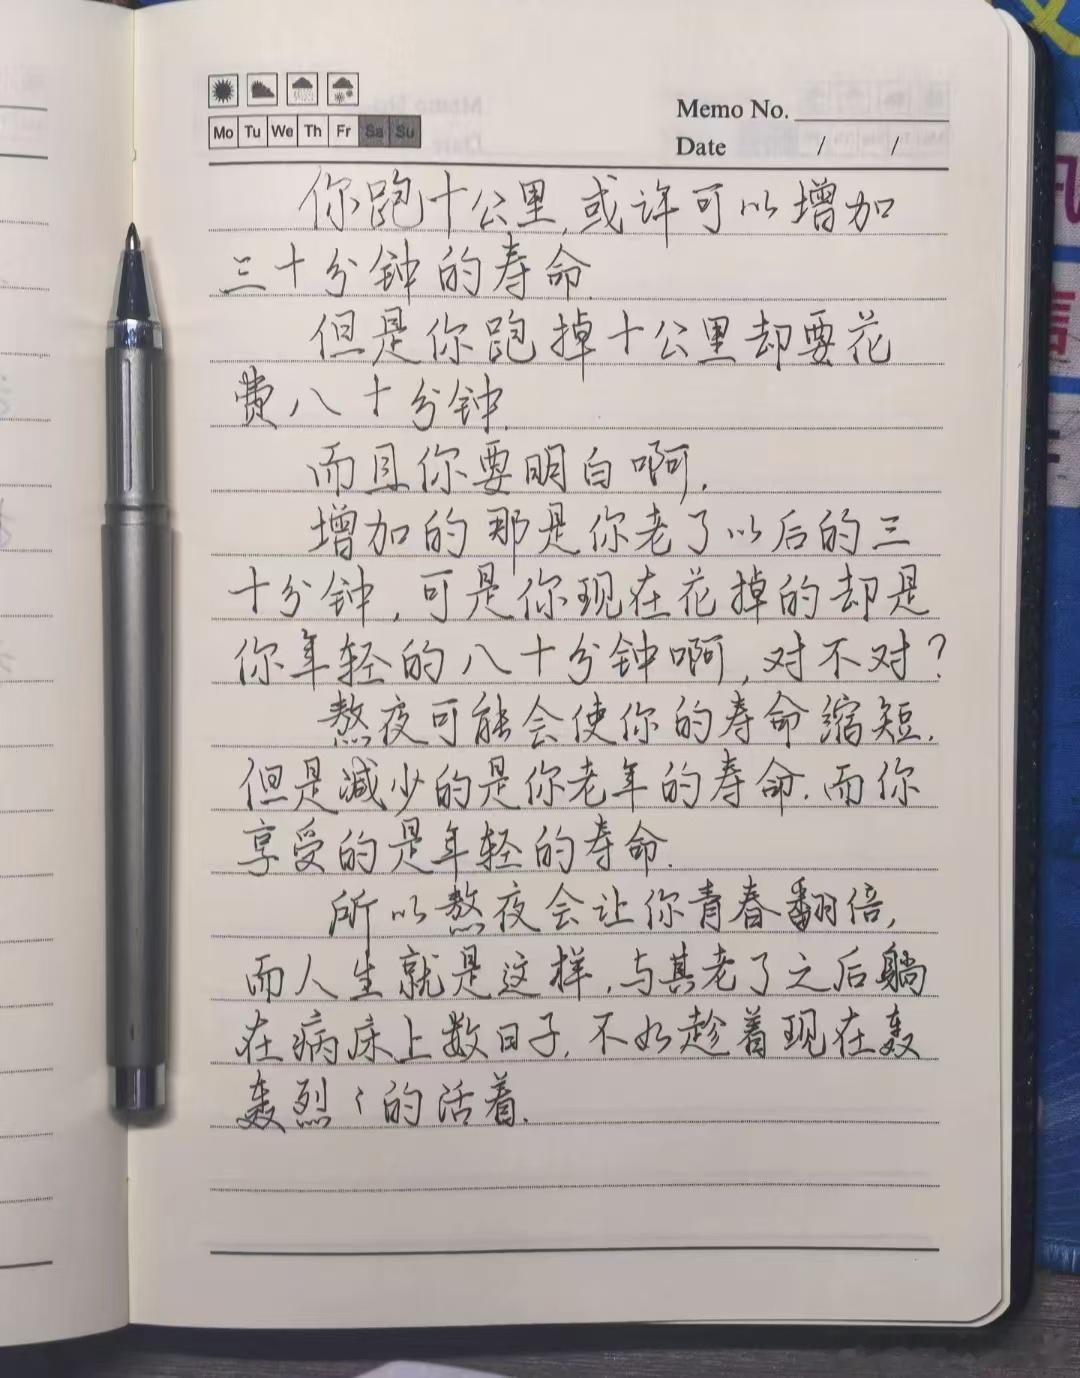 Mo Tu We Th Fr Sa Su
Memo No.
Date / /
你跑十公里,或许可以增加
三十分钟的寿命.
但是你跑掉十公里却要花
费八十分钟.
而且你要明白啊.
增加的那是你老了以后的三
十分钟,可是你现在花掉的却是
你年轻的八十分钟啊,对不对?
熬夜可能会使你的寿命缩短.
但是减少的是你老年的寿命.而你
享受的是年轻的寿命.
所以熬夜会让你青春翻倍,
而人生就是这样,与其老了之后躺
在病床上数日子,不如趁着现在轰
轰烈々的活着.
讯
信